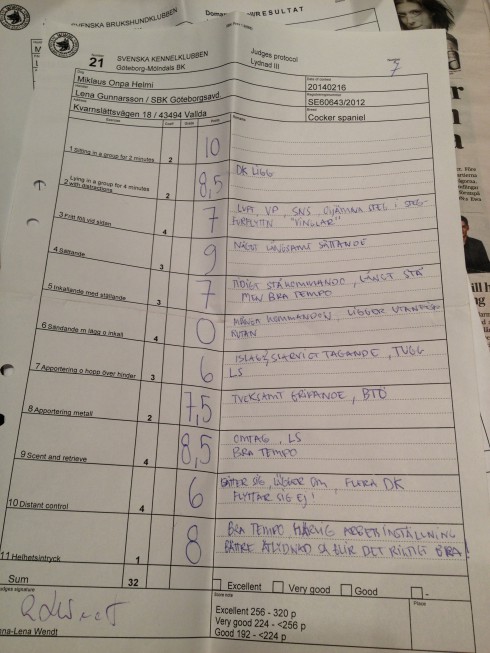 SVENSKA BRUKSHUNDKLUBBEN
RESULTAT
Number
21
SVENSKA KENNELKLUBBEN
Göteborg-Mölndals BK
Judges protocol
Lydnad III
7
Dog
Miklaus Onpa Helmi
Date of contest
20140216
Lena Gunnarsson / SBK Göteborgsavd.
SE60643/2012
Kvarnslättsvägen 18 / 43494 Vallda
Breed
Cocker spaniel
Exercise
Coeff
Grade
Points
Remarks
1 Sitting in a group for 2 minutes
2
10
2 Lying in a group for 4 minute with distractions
2
8,5
DK LIGG
3 Fritt följ vid sidan
4
7
LUFT, VP, SNS, OJÄMNA STEG I STEG-
FÖRFLYTTN "VINGLAR"
4 Sättande
3
9
NÅGOT LÅNGSAMT SÄTTANDE
5 Inkallande med ställande
3
7
TIDIGT STÅKOMMANDO, LÅNGT STÅ
MEN BRA TEMPO
6 Sändande m lägg o inkall
4
0
MÅNGA KOMMANDON, LIGGER UTANFÖR
RUTAN
7 Apportering o hopp över hinder
3
6
ISLAG, SLARVIGT TAGANDE, TUGG
LS
8 Apportering metall
2
7,5
TVEKSAMT GRIPANDE, BTÖ
9 Scent and retrieve
4
8,5
OMTAG, LS
BRA TEMPO
10 Distant control
4
6
SÄTTER SIG, LIGGER OM, FLERA DK
FLYTTAR SIG EJ!
11 Helhetsintryck
1
8
BRA TEMPO, HÄRLIG ARBETSINSTÄLLNING
BÄTTRE ÅTLYDNAD så BLIR DET RIKTIGT BRA!
Sum
32
Excellent
Very good
Good
-
Judges signature
Score note
Place
Excellent 256 - 320 p
Very good 224 - <256 p
Good 192 - <224 p
na-Lena Wendt